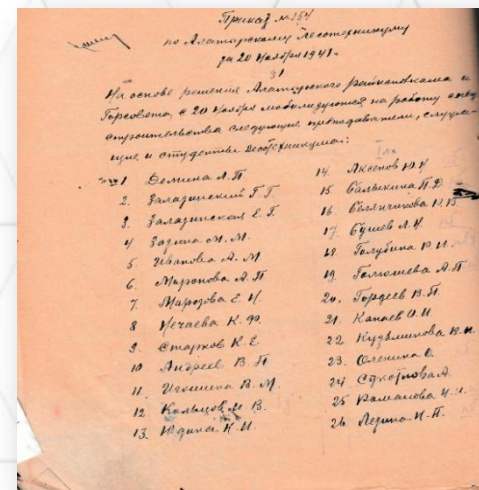 Приказ № 254
по Алатырскому Лесотехникуму
за 20 Ноября 1941 г
§1
На основе решения Алатырского Райисполкома и
Горсовета, с 20 Ноября мобилизуются на работу спец
строительства следующие преподаватели, служа-
щие и студенты Лесотехникума:
1 Демина А. П
2. Залазинский Г. Г
3. Залазинская Е. Г.
4 М. М.
5 Иванова А. М
6. Миронова А. П
7. Морозова Е. И.
8 Нечаева К. Ф.
9. Старков К. Е.
10 Андреев В. П
11. Игошина В. М.
12 Кольцов М В.
13. Юдина Н. И.
14. Аксенов Ю. И
15 Балыкина П. Д
16.
17. Бушев Л. И.
18. Голубина
19. А. П
20. Гордеев В. П.
21. Канаев О. И
22 Кузьминова В. И.
23. Оленина О.
24
25 Романова И. И.
26. Ледина И. П.